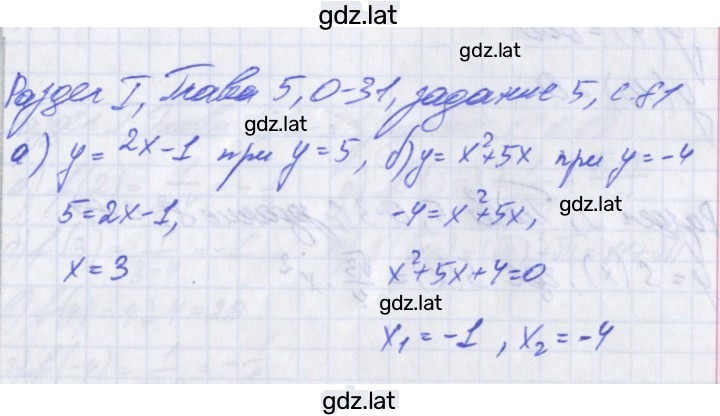 gdz.lat
gdz.lat
Раздел I, Глава 5, О-31, задание 5, с 81
gdz.lat
а) y = 2x-1 при y = 5, б) y = x²+5x при y = -4
gdz.lat
5 = 2x-1, -4 = x²+5x,
x = 3 x²+5x+4=0
gdz.lat
x₁ = -1, x₂ = -4
gdz.lat